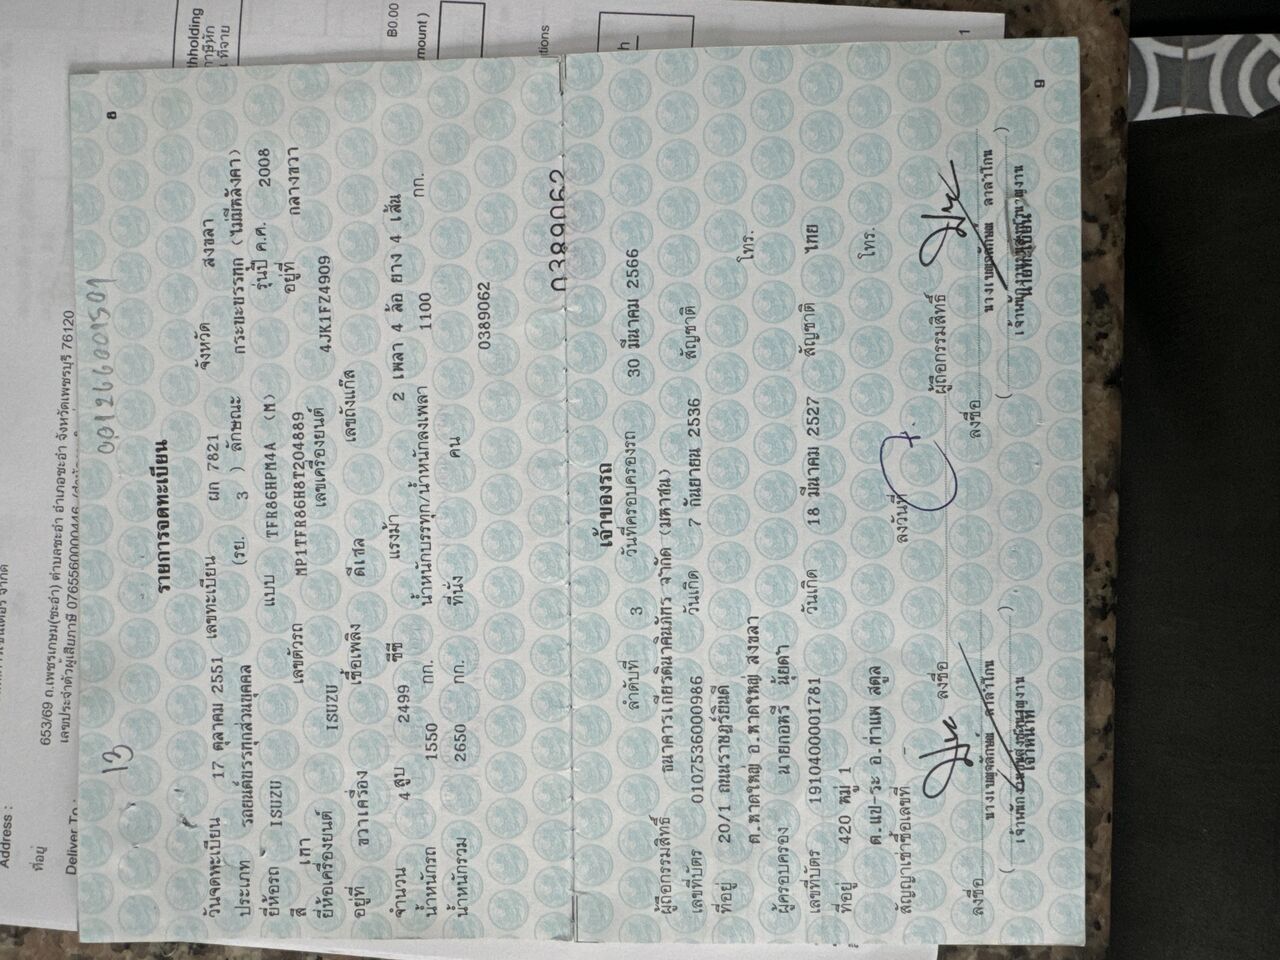 8
13
001266001501
รายการจดทะเบียน
วันจดทะเบียน 17 ตุลาคม 2551 เลขทะเบียน ผก 7821 จังหวัด สงขลา
ประเภท รถยนต์บรรทุกส่วนบุคคล (รย. 3 ) ลักษณะ กระบะบรรทุก (ไม่มีหลังคา)
ยี่ห้อรถ ISUZU แบบ TFR86HPM4A (M) รุ่นปี ค.ศ. 2008
สี เทา เลขตัวรถ MP1TFR86H8T204889 อยู่ที่ กลางขวา
ยี่ห้อเครื่องยนต์ ISUZU เลขเครื่องยนต์ 4JK1FZ4909
อยู่ที่ ขวาเครื่อง เชื้อเพลิง ดีเซล เลขถังแก๊ส
จำนวน 4 สูบ 2499 ซีซี แรงม้า 2 เพลา 4 ล้อ ยาง 4 เส้น
น้ำหนักรถ 1550 กก. น้ำหนักบรรทุก/น้ำหนักลงเพลา 1100 กก.
น้ำหนักรวม 2650 กก. ที่นั่ง คน
0389062
0389062
เจ้าของรถ
ลำดับที่ 3 วันที่ครอบครองรถ 30 มีนาคม 2566
ผู้ถือกรรมสิทธิ์ ธนาคารเกียรตินาคินภัทร จำกัด (มหาชน)
เลขที่บัตร 0107536000986 วันเกิด 7 กันยายน 2536 สัญชาติ
ที่อยู่ 20/1 ถนนราษฎร์ยินดี
ต.หาดใหญ่ อ.หาดใหญ่ สงขลา โทร.
ผู้ครอบครอง นายกอหรี นุ้ยดำ
เลขที่บัตร 1910400001781 วันเกิด 18 มีนาคม 2527 สัญชาติ ไทย
ที่อยู่ 420 หมู่ 1
ต.แป-ระ อ.ท่าแพ สตูล โทร.
สัญญาเช่าซื้อเลขที่ - ลงวันที่
ลงชื่อ ผู้ถือกรรมสิทธิ์
ลงชื่อ ลงชื่อ
9
Address :
ที่อยู่
653/69 ถ.เพชรเกษม(ชะอำ) ตำบลชะอำ อำเภอชะอำ จังหวัดเพชรบุรี 76120
เลขประจำตัวผู้เสียภาษี 0765560000446
Deliver To :
thholding
ภาษีหัก
ที่จ่าย
฿0.00
mount )
tions
1